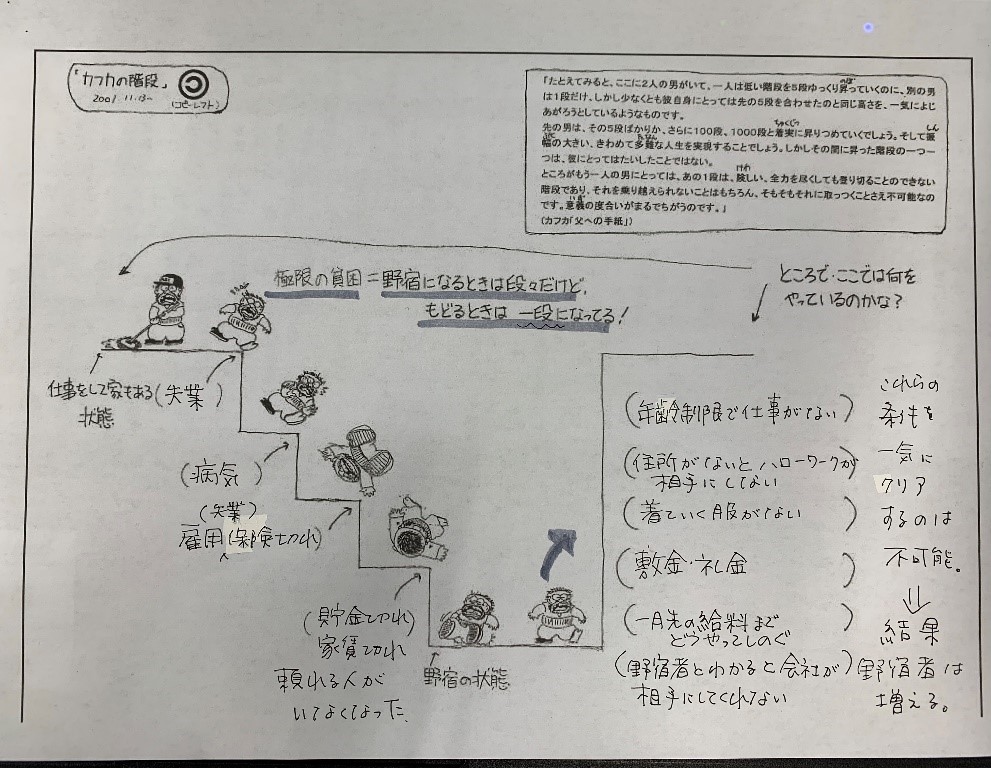 「カフカの階段」
2001.11.13~
(コピーレフト)
「たとえてみると、ここに2人の男がいて、一人は低い階段を5段ゆっくり昇っていくのに、別の男
は1段だけ、しかし少なくとも彼自身にとっては先の5段を合わせたのと同じ高さを、一気によじ
あがろうとしているようなものです。
先の男は、その5段ばかりか、さらに100段、1000段と着実に昇りつめていくでしょう。そして振
幅の大きい、きわめて多難な人生を実現することでしょう。しかしその間に昇った階段の一つ一
つは、彼にとってはたいしたことではない。
ところがもう一人の男にとっては、あの1段は、険しい、全力を尽くしても登り切ることのできない
階段であり、それを乗り越えられないことはもちろん、そもそもそれに取っつくことさえ不可能なの
です。意義の度合いがまるでちがうのです。」
(カフカ「父への手紙」)
極限の貧困=野宿になるときは段々だけど、
もどるときは一段になってる!
ところで・ここでは何を
やっているのかな?
仕事をして家もある
状態
(失業)
(病気)
(失業)
雇用(保険切れ)
(貯金切れ)
家賃切れ
頼れる人が
いなくなった
野宿の状態
(年齢制限で仕事がない)
(住所がないとハローワークが
相手にしない)
(着ていく服がない)
(敷金・礼金)
(一月先の給料まで
どうやってしのぐ)
(野宿者とわかると会社が)
相手にしてくれない
これらの
条件を
一気に
クリア
するのは
不可能。
⇓
結果
野宿者は
増える。